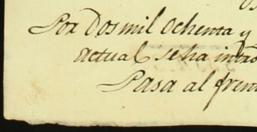 Por Dos mil ochenta y
actual se ha intro
Pasa al fren